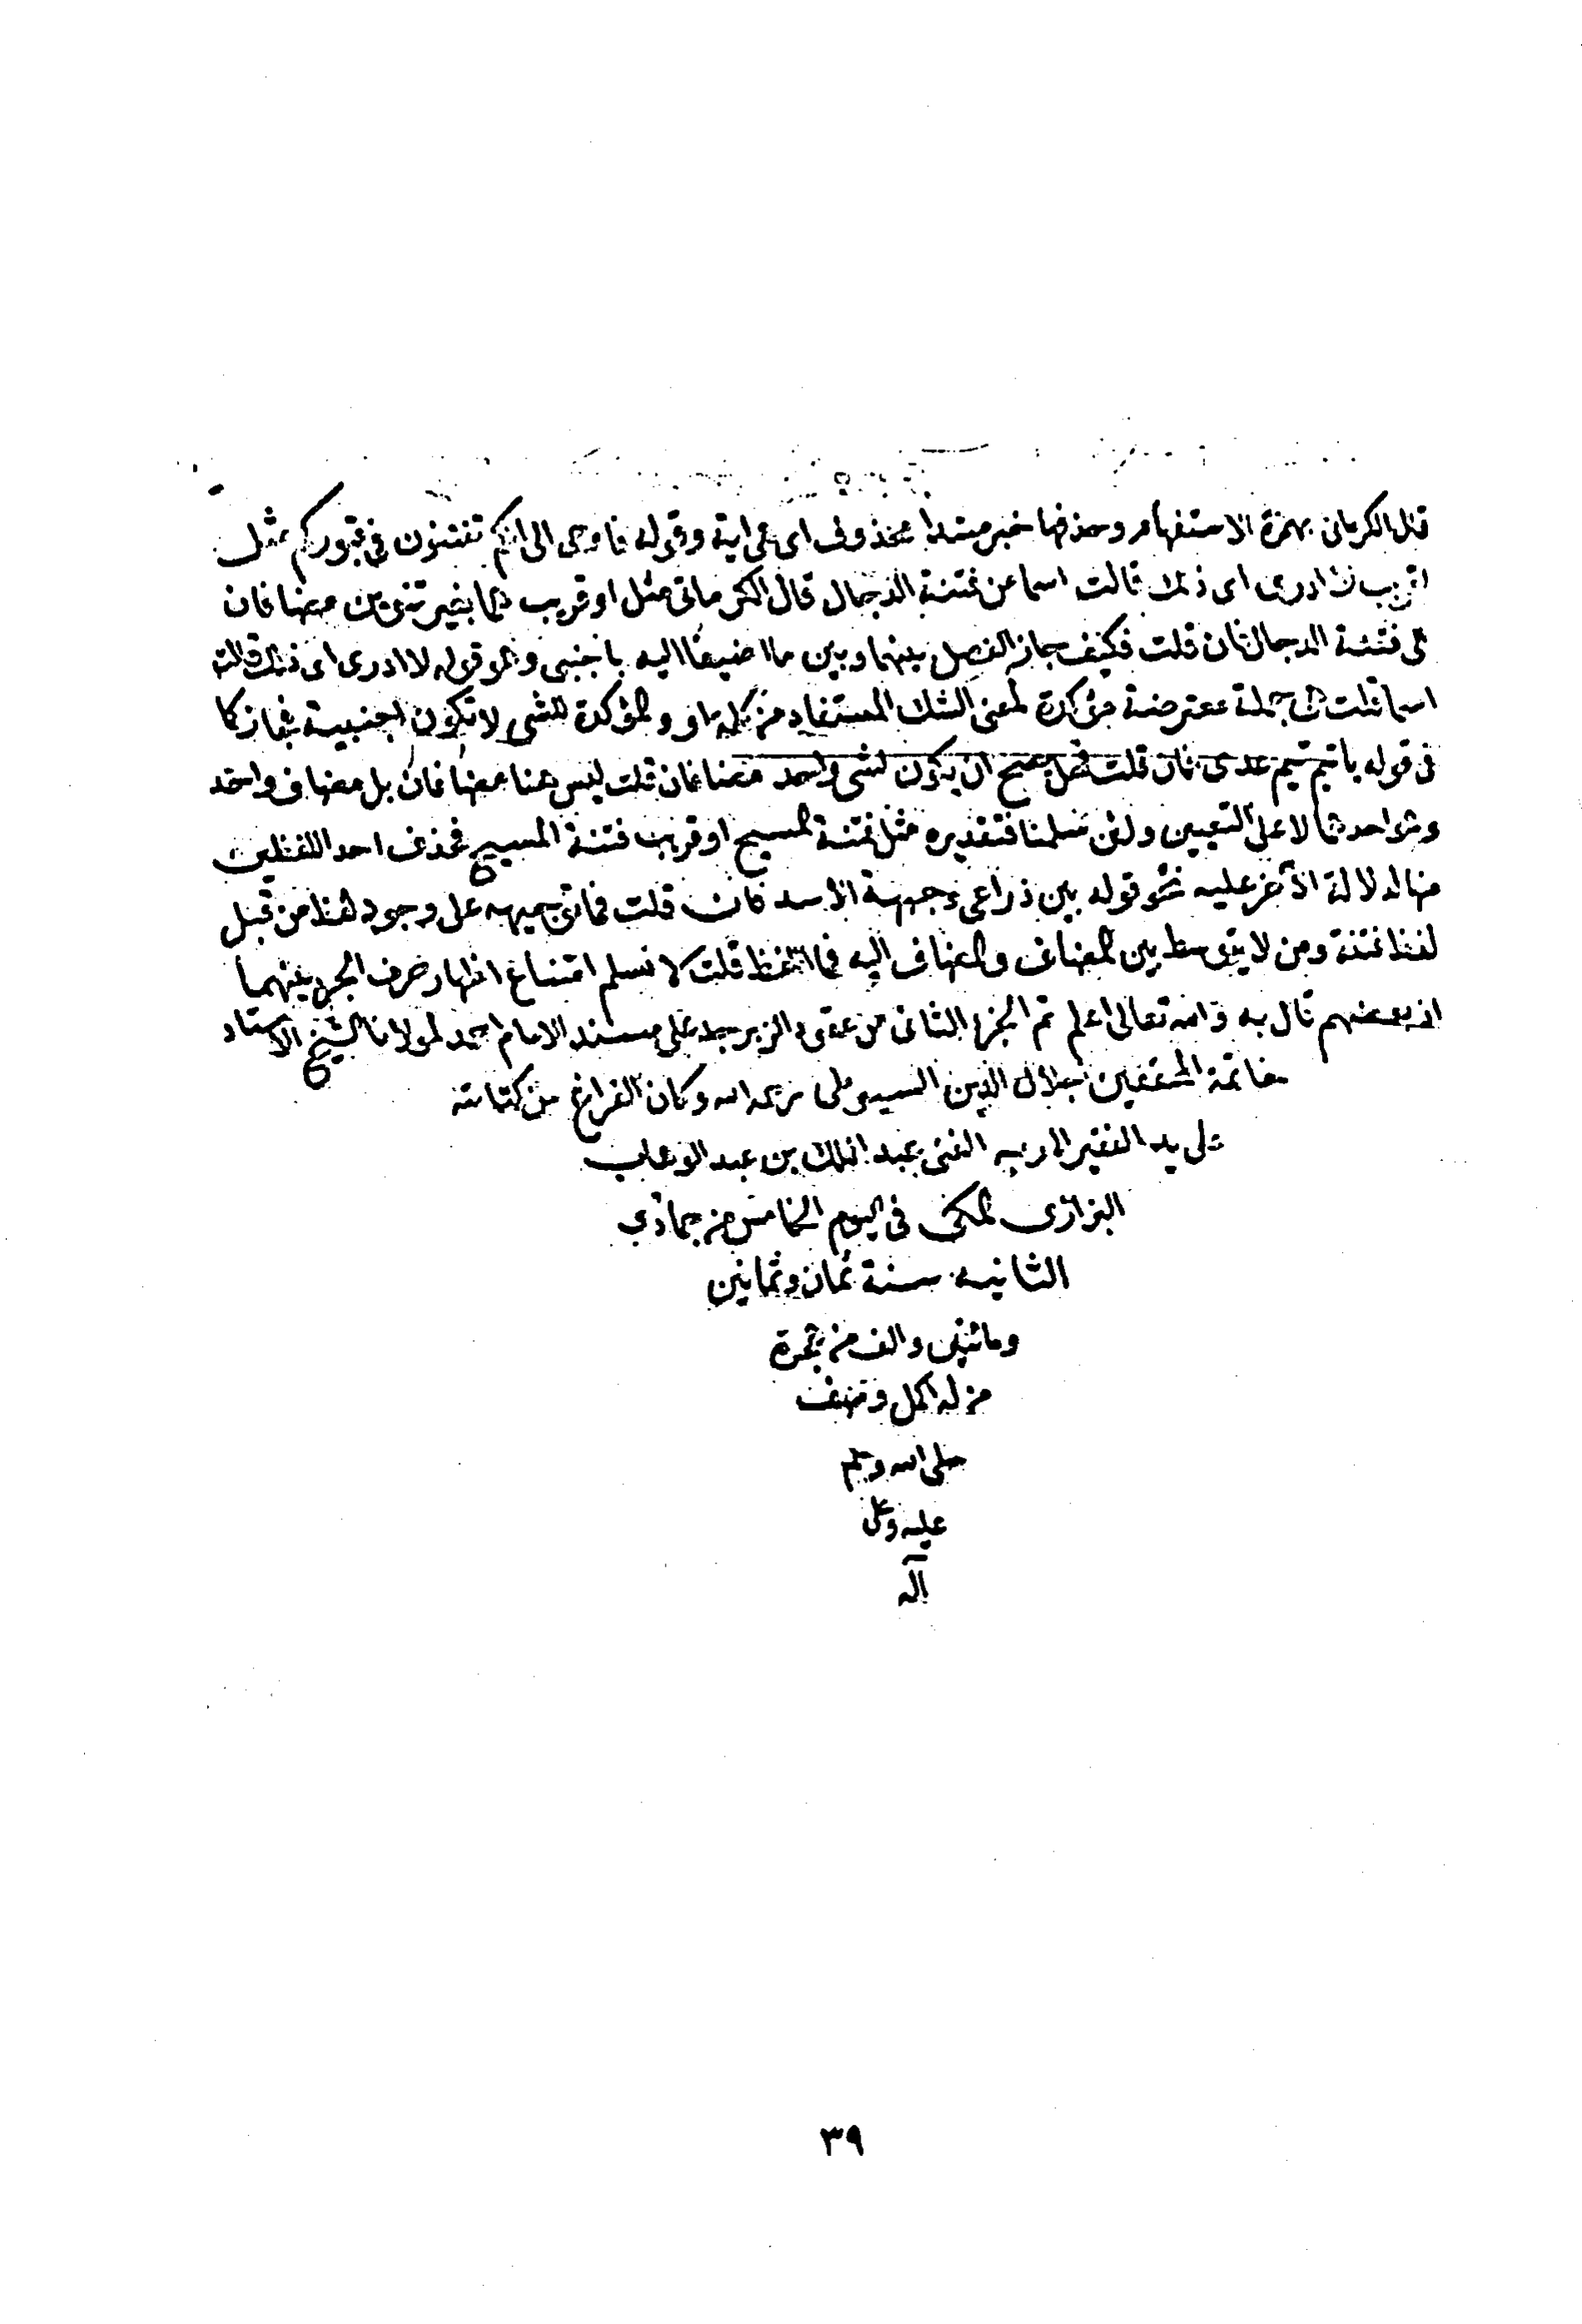 قال الكرمانى بهمزة الاستفهام وحذفها خبر مبتدا محذوف اى هى اية وقوله فاوحى الى انكم تفتنون فى قبوركم مثل
او قريب لا ادرى اى ذلك قالت اسما من فتنة الدجال قال الكرمانى مثل او قريب هما بغير تنوين مضافان
الى فتنة الدجال فان قلت فكيف جاز الفصل بينهما وبين ما اضيفا اليه باجنبى وهو قوله لا ادرى اى ذلك قالت
اسما قلت هى جملة معترضة مؤكدة لمعنى الشك المستفاد من كلمة او والمؤكدة للشى لا تكون اجنبية فجاز كما
فى قوله يا تيم تيم عدى فان قلت فهل يصح ان يكون لشى واحد مضافان قلت ليس هنا مضافان بل مضاف واحد
وهو احدهما لا على التعيين ولئن سلمنا فتقديره مثل فتنة المسيح او قريب فتنة المسيح فحذف احد اللفظين
منها لدلالة الآخر عليه نحو قوله بين ذراعى وجبهة الاسد فان قلت فما توجيهه على وجود لفظ من قبل
لفظ فتنة ومن لا يتوسط بين المضاف والمضاف اليه فى اللفظ قلت لا نسلم امتناع اظهار حرف الجر بينهما
اذ بعضهم قال به والله تعالى اعلم تم الجزء الثانى من عقود الزبرجد على مسند الامام احمد لمولانا الشيخ الاستاد
خاتمة المحققين جلال الدين السيوطى رحمه الله وكان الفراغ من كتابته
على يد الفقير الى ربه الغنى عبد الملك بن عبد الوهاب
المكى فى اليوم الخامس من جمادى
الثانيه سنة ثمان وثمانين
ومائتين والف من هجرة
من له اكمل وصف
صلى الله وسلم
عليه وعلى
آله
٣٩